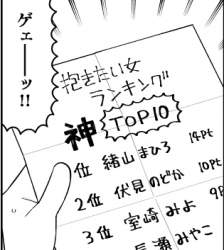 ゲェーーッ!!
抱きたい女
ランキング
神 TOP10
位 緒山まひろ 14Pt
2位 伏見のどか 10Pt
3位 室崎みよ 9
長瀬みやこ